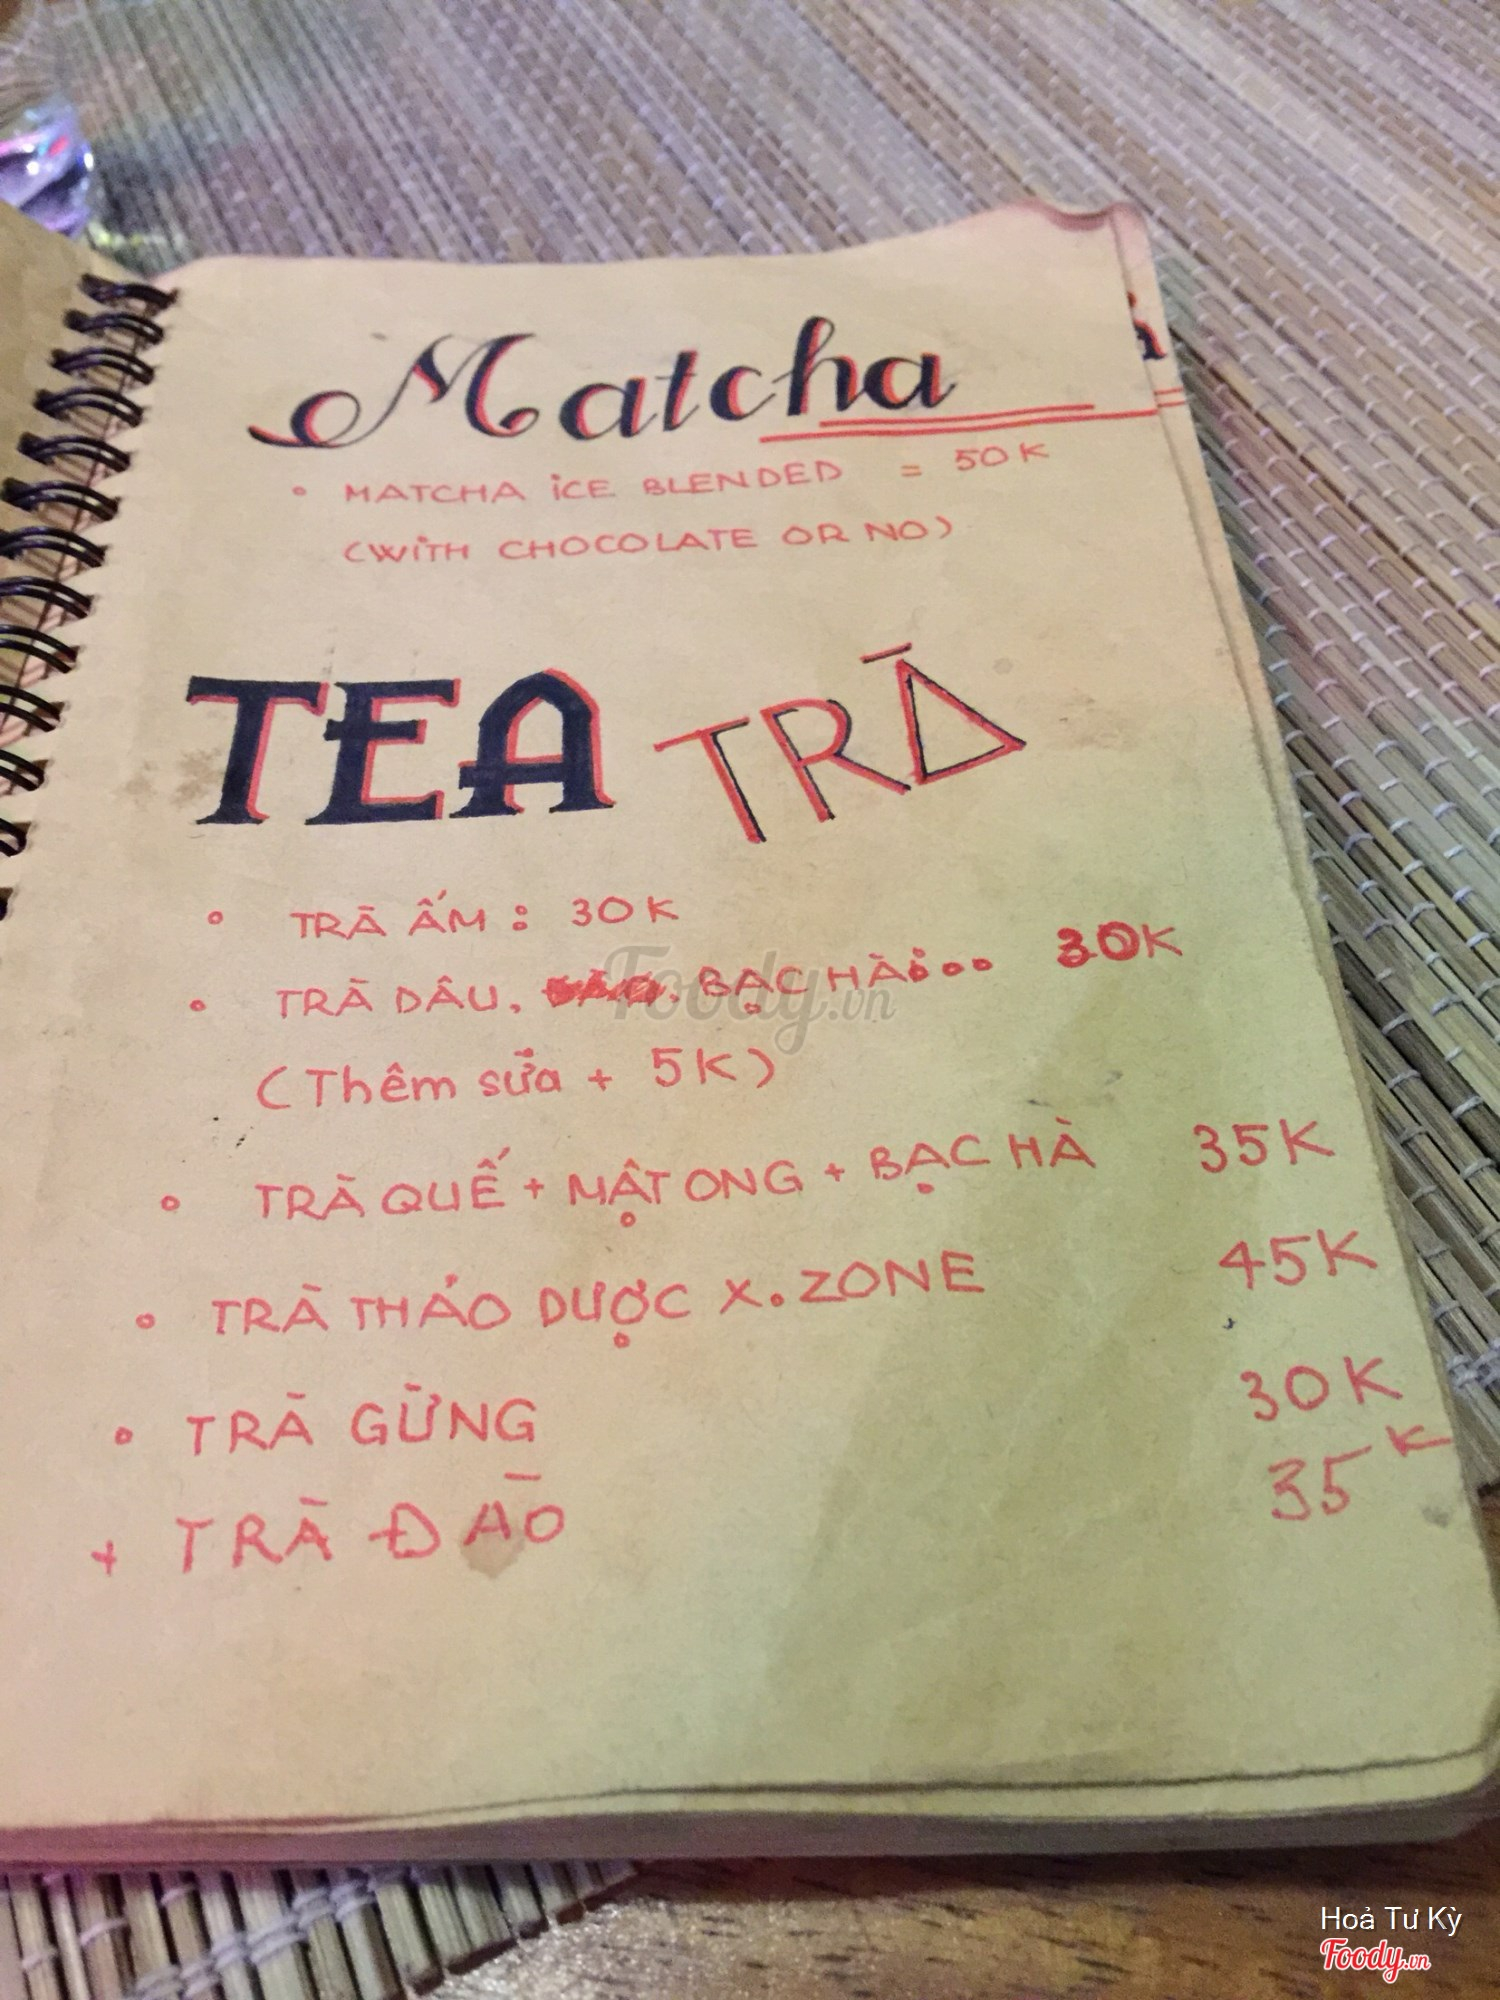 Matcha
• MATCHA iCE BLENDED = 50K
(WiTH CHOCOLATE OR NO)
TEA TRÀ
• TRÀ ẤM : 30K
• TRÀ DÂU, BẠC HÀ... 30K
(Thêm sữa + 5K)
• TRÀ QUẾ + MẬT ONG + BẠC HÀ 35K
• TRÀ THẢO DƯỢC X.ZONE 45K
• TRÀ GỪNG 30K
+ TRÀ ĐÀO 35K
Foody.vn
Hoả Tư Kỳ
Foody.vn